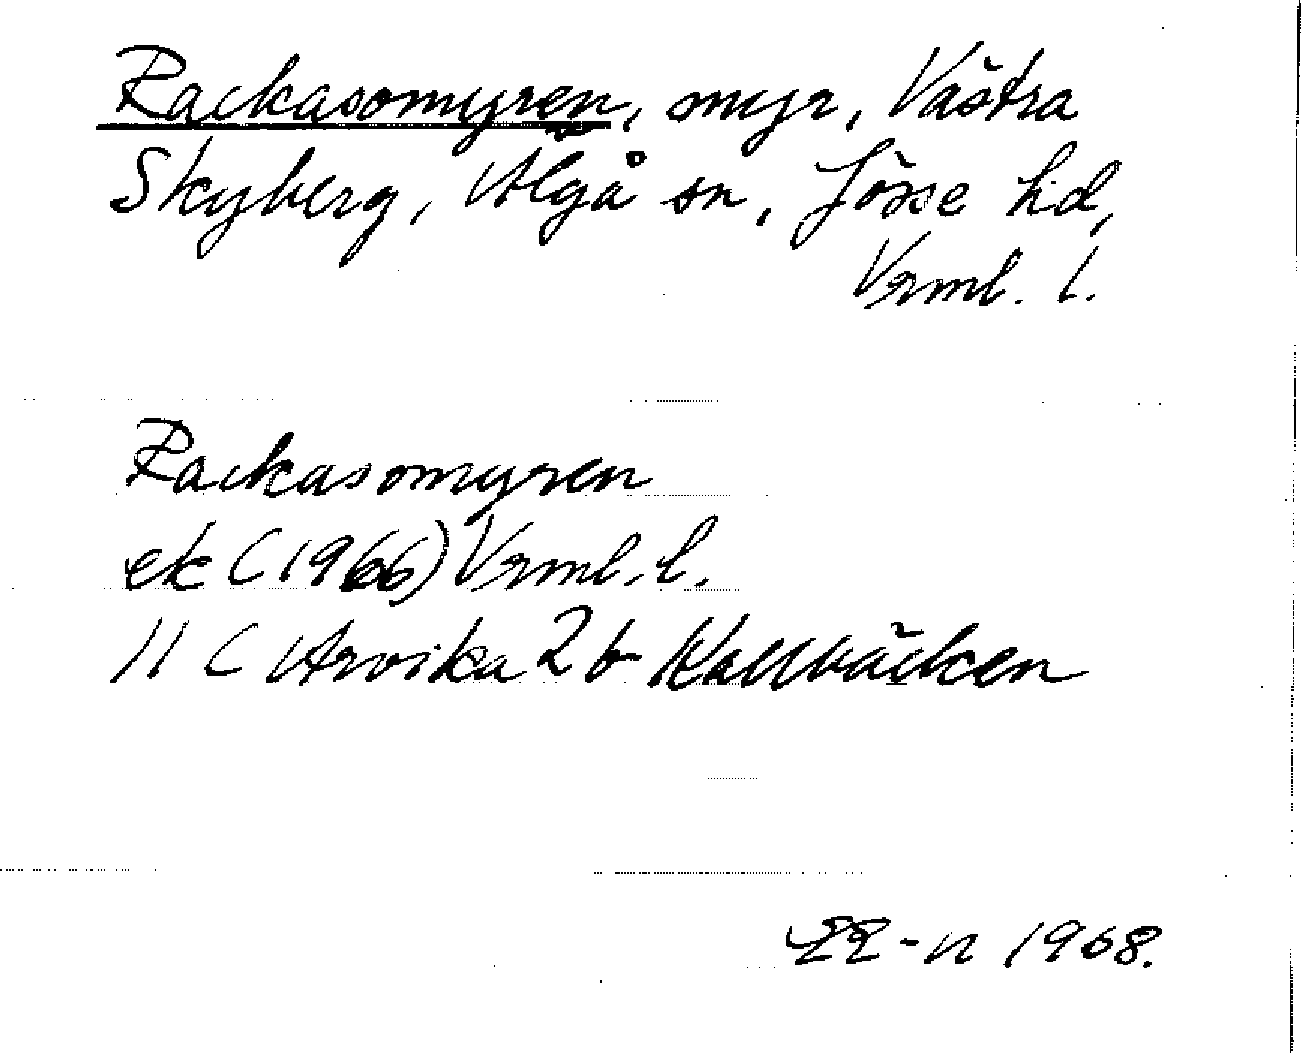 Rackasomyren, myr, Västra
Skyberg, Älgå sn, Jösse hd,
Vrml. l.
Rackasomyren
ek (1966) Vrml. l.
11 C Arvika 2 b Kallbäcken
1968.